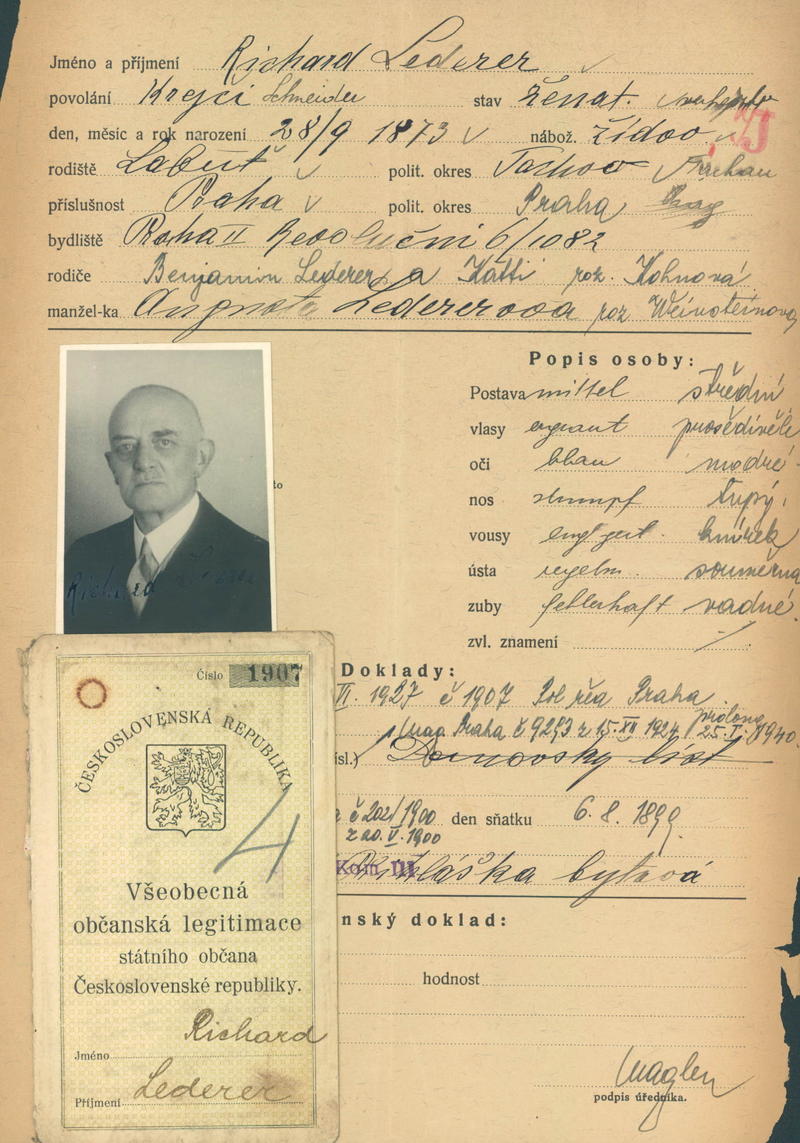 Jméno a příjmení Richard Lederer
povolání Krejčí Schneider stav ženat.
den, měsíc a rok narození 28/9 1873 nábož. židov J
rodiště Labuť polit. okres Tachov Tachau
příslušnost Praha polit. okres Praha Prag
bydliště Praha II Revoluční 6/1082
rodiče Benjamin Lederer a Katti roz. Kohnová
manžel-ka Augusta Ledererova roz Weinsteinova
Popis osoby:
Postava mittel střední
vlasy ergraut prošedivělé
oči blau modré
nos stumpf tupý
vousy engl. gest. knírek
ústa regelm. souměrná
zuby fehlerhaft vadné
zvl. znamení /
to
Richard Lederer
Doklady:
VI. 1927 č 1907 Pol řed Praha
Mag Praha č 9293 z 15. XII 1924 prolong. 25. I. 1940
ísl.) Domovský list
č 2021/1900 den sňatku 6. 8. 1899
z 20. V. 1900
Kom III Přihláška bytová
nský doklad:
hodnost
podpis úředníka.
Číslo 1907
ČESKOSLOVENSKÁ REPUBLIKA
4
Všeobecná
občanská legitimace
státního občana
Československé republiky.
Jméno Richard
Příjmení Lederer